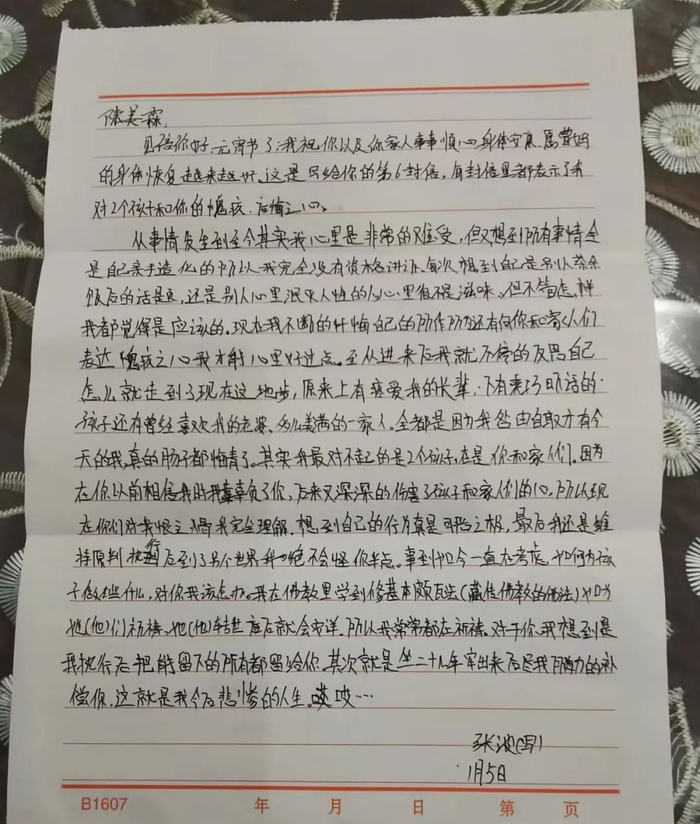 陈美霖,
见信你好。元宵节了:我祝你以及你家人事事顺心身体安康。愿蓉妈
的身体恢复越来越好。这是写给你的第6封信,每封信里都表示了我
对2个孩子和你的愧疚、后悔之心。
从事情发生到至今其实我心里是非常的难受,但又想到所有事情全
是自己亲手造化的所以我完全没有资格讲诉。每次想到自己是别人茶余
饭后的话题,还是别人心里泯灭人性的人心里很不是滋味。但不管怎样
我都觉得是应该的,现在我不断的忏悔自己的所作所为还有向你和家人们
表达愧疚之心我才能心里好过点。至从进来后我就不停的反思自己
怎么就走到了现在这地步,原来上有疼爱我的长辈、下有乖巧听话的
孩子还有曾经喜欢我的老婆、多么美满的一家人。全都是因为我咎由自取才有今
天的我,真的肠子都悔青了。其实我最对不起的是2个孩子,在是你和家人们。因为
在你以前相信我时我辜负了你,后来又深深的伤害了孩子和家人们的心,所以现
在你们对我恨之入骨我完全理解,想到自己的行为真是可耻之极,最后我还是维
持原判执行后到了另个世界我也绝不会怪你半点。事到如今一直在考虑,如何为孩
子做些什么,对你我该怎办。我在佛教里学到修基本颇瓦法(藏传佛教的佛法)如为
她(他)们祈祷,她(他)转世应后就会安详,所以我常常都在祈祷。对于你,我想到是
我执行后把能留下的所有都留给你,其次就是坐二十九年牢出来后尽我所能的补
偿你,这就是我今后悲惨的人生。哎哎……
张波(写)
1月5日
B1607 年 月 日 第 页